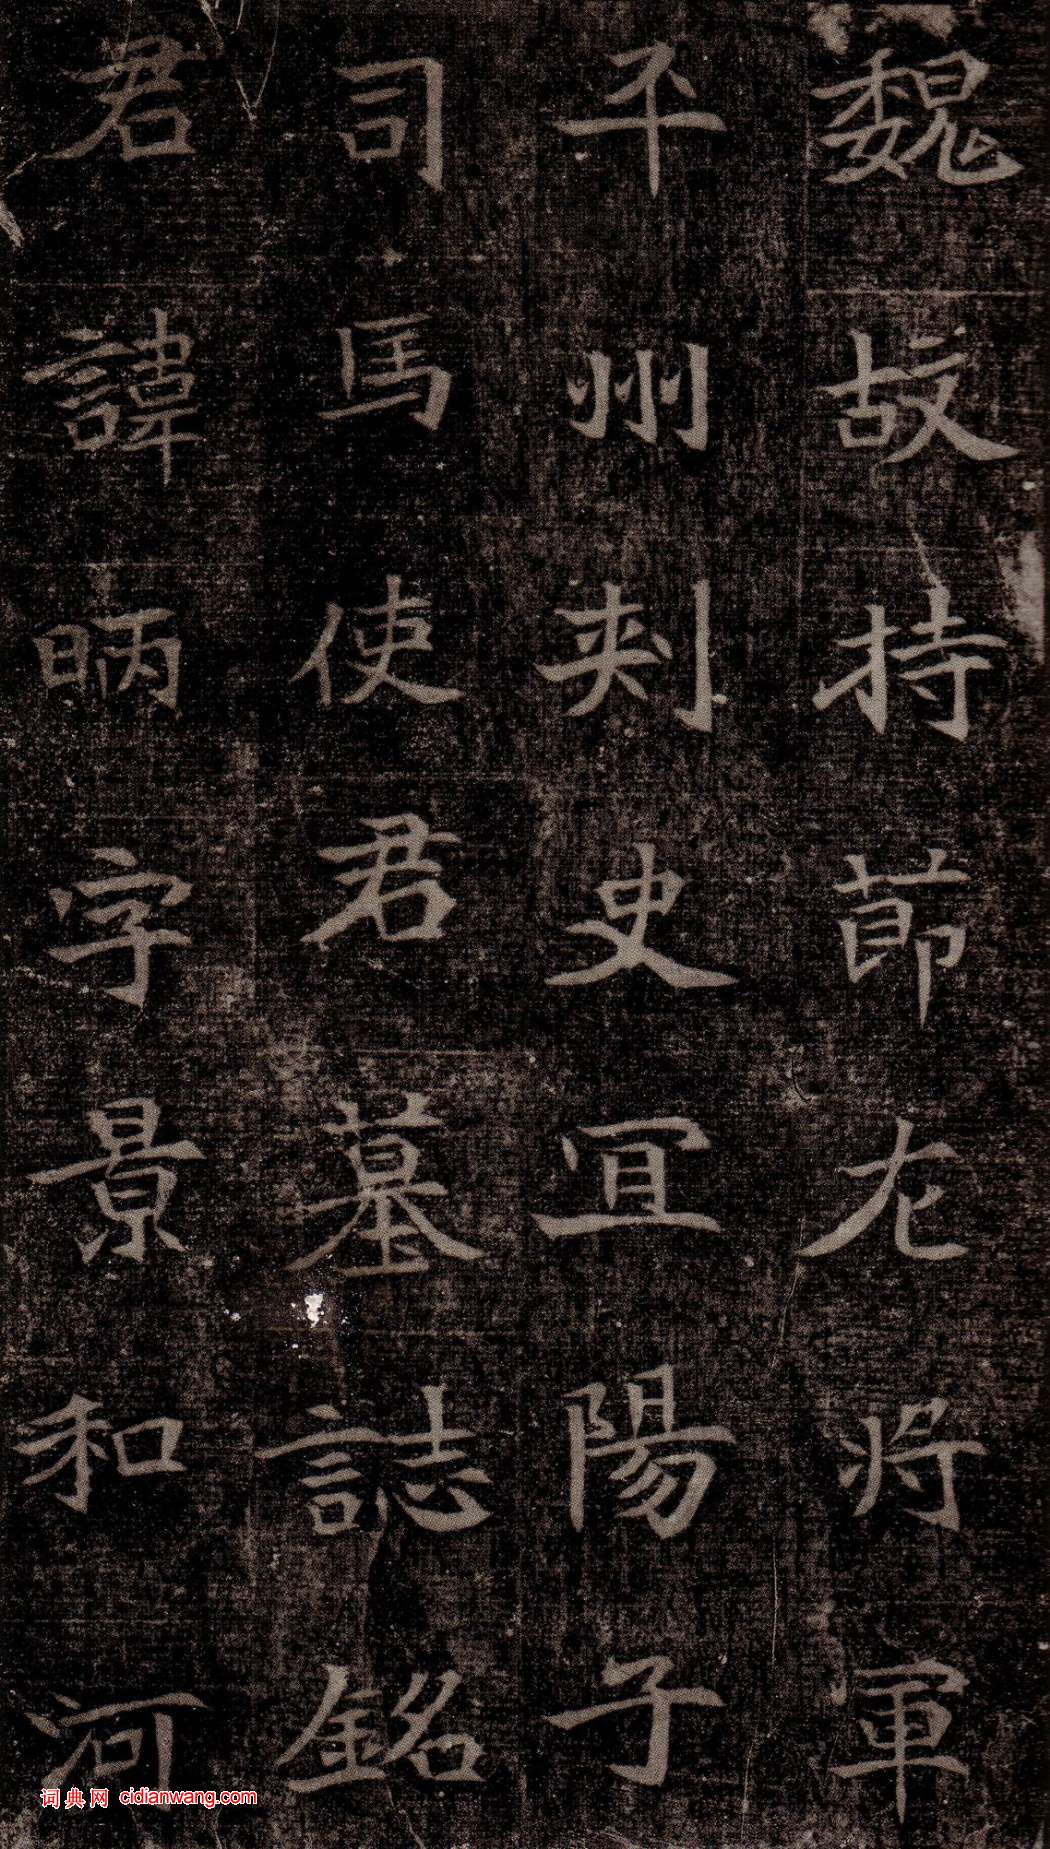 魏故持節左将軍
平州刺史宜陽子
司馬使君墓誌銘
君諱昞字景和河
词典网 cidianwang.com